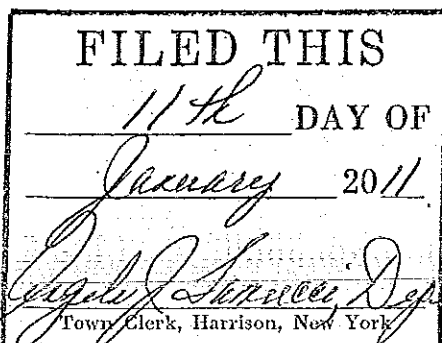 FILED THIS
11th DAY OF
January 2011
J Dep
Town Clerk, Harrison, New York